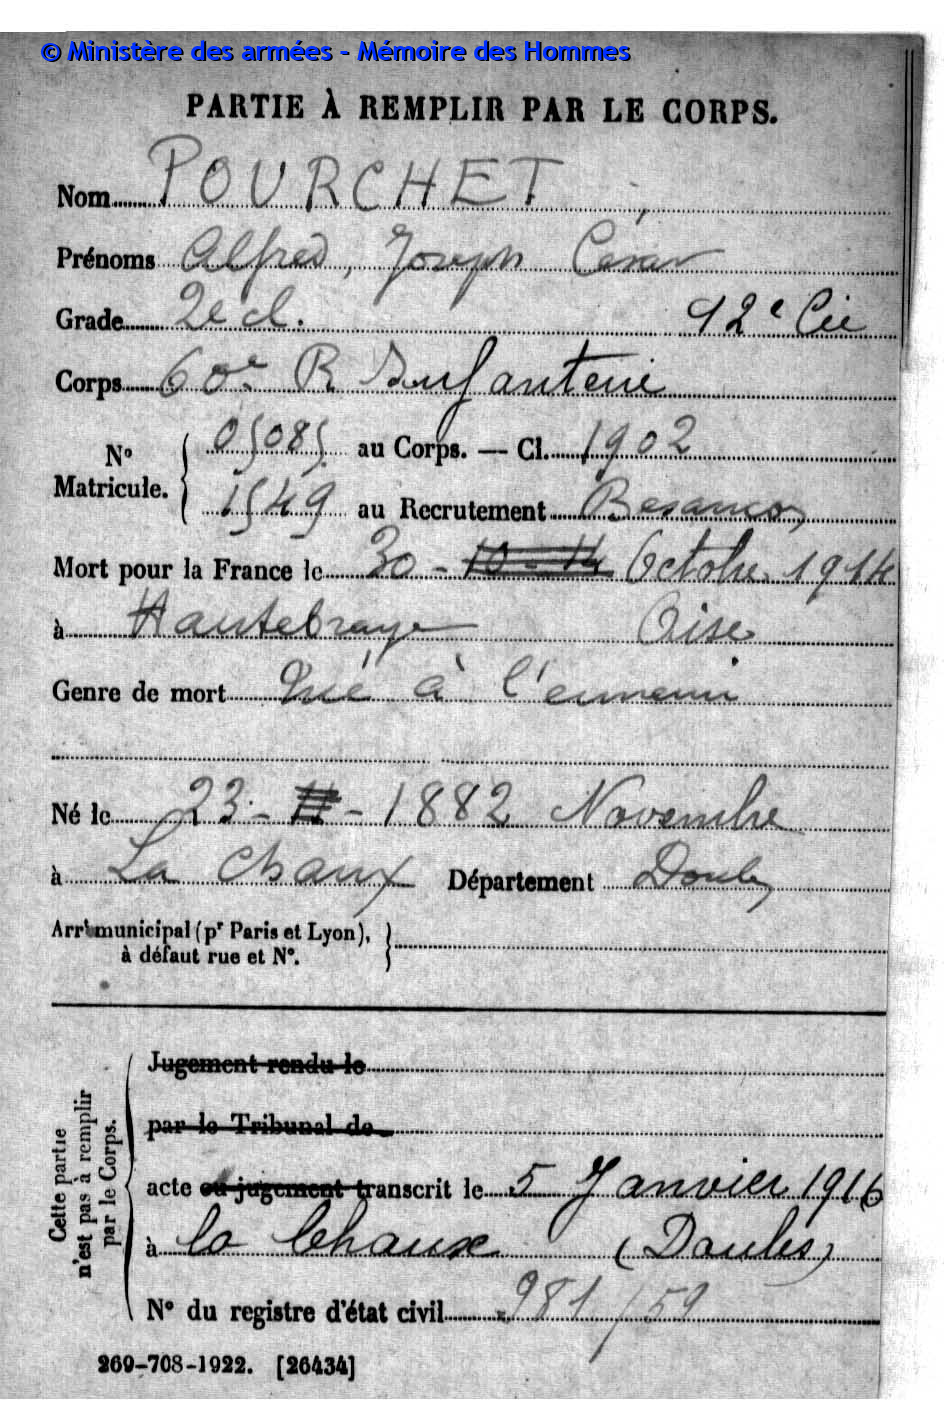 © Ministère des armées - Mémoire des Hommes
PARTIE À REMPLIR PAR LE CORPS.
Nom POURCHET
Prénoms Alfred, Joseph César
Grade 2e cl. 12e Cie
Corps 60e R Infanterie
N° Matricule. 05085 au Corps. — Cl. 1902
1549 au Recrutement Besançon
Mort pour la France le 30 - 10 - 14 Octobre 1914
à Hautebraye Oise
Genre de mort Tué à l'ennemi
Né le 23 - 11 - 1882 Novembre
à La Chaux Département Doubs
Arrt municipal (pr Paris et Lyon),
à défaut rue et N°.
Cette partie
n'est pas à remplir
par le Corps.
Jugement rendu le
par le Tribunal de
acte ou jugement transcrit le 5 Janvier 1916
à la Chaux (Doubs)
N° du registre d'état civil 981/59
269-708-1922. [26434]